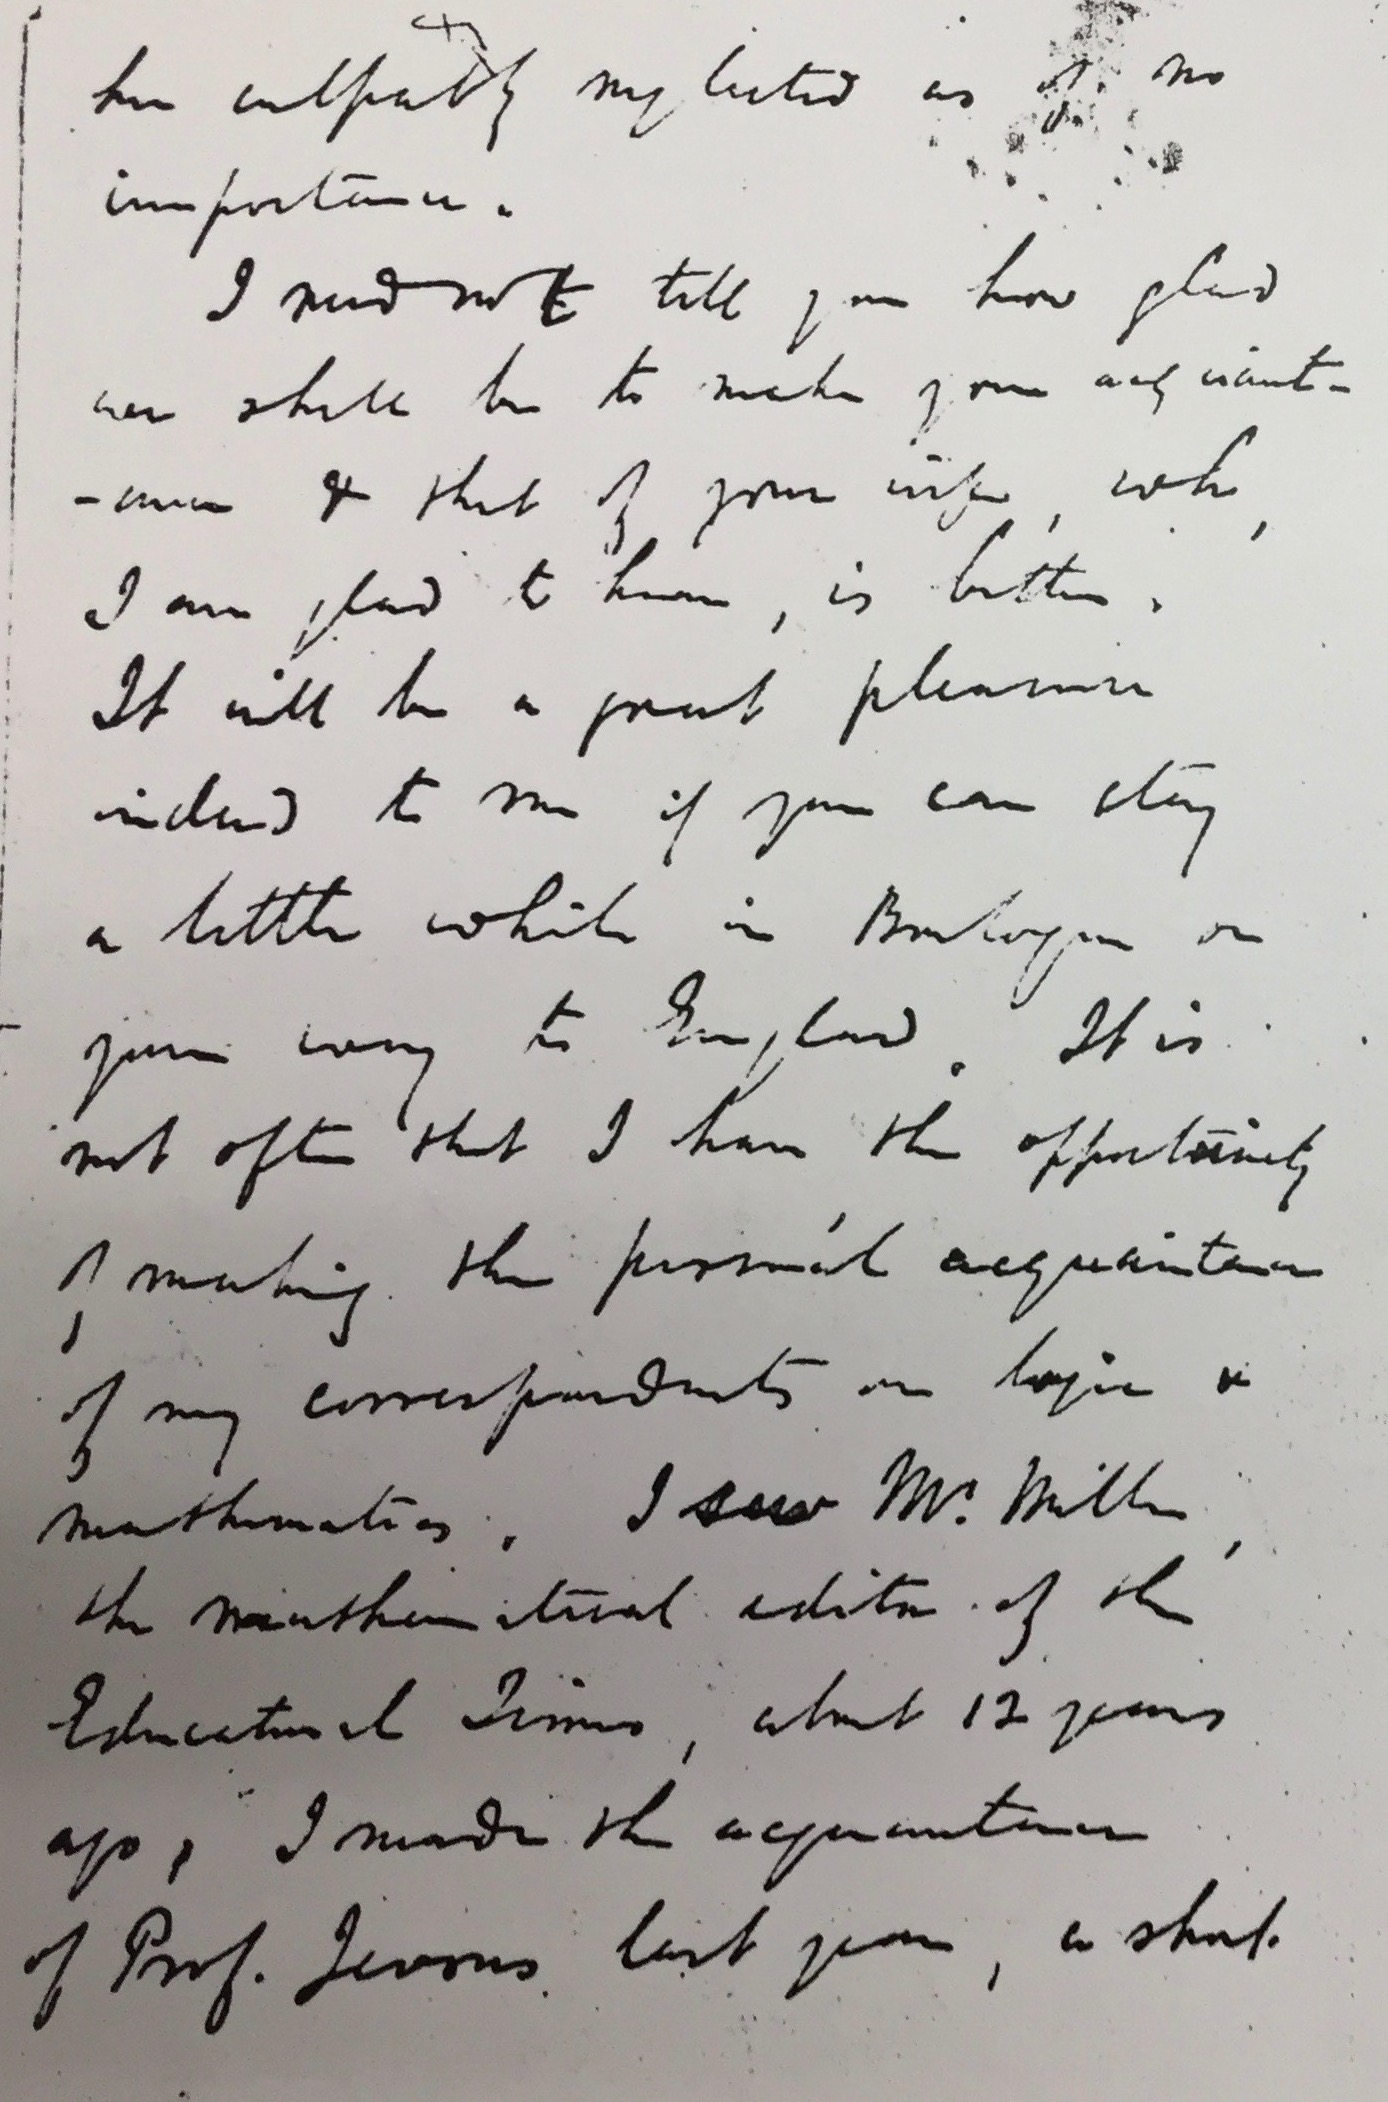 been culpably neglected as of no
importance.
I need not tell you how glad
we shall be to make your acquaint-
-ance & that of your wife, who,
I am glad to know, is better.
It will be a great pleasure
indeed to me if you can stay
a little while in Boulogne on
your way to England. It is
not often that I have the opportunity
of making the personal acquaintance
of my correspondents on logic &
mathematics. I saw Mr. Miller,
the mathematical editor of the
Educational Times, about 12 years
ago; I made the acquaintance
of Prof. Jevons last year, a short